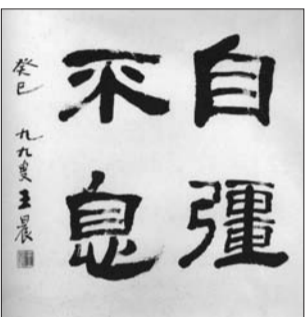 自彊
不息
癸巳 九九叟王晨